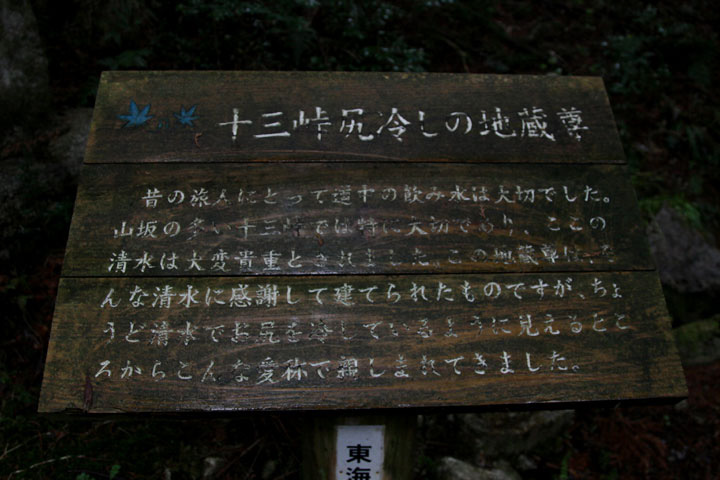 十三峠尻冷しの地蔵尊
昔の旅人にとって道中の飲み水は大切でした。
山坂の多い十三峠では特に大切であり、ここの
清水は大変貴重とされました。この地蔵尊はそ
んな清水に感謝して建てられたものですが、ちょ
うど清水でお尻を冷しているように見えるとこ
ろからこんな愛称で親しまれてきました。
東海